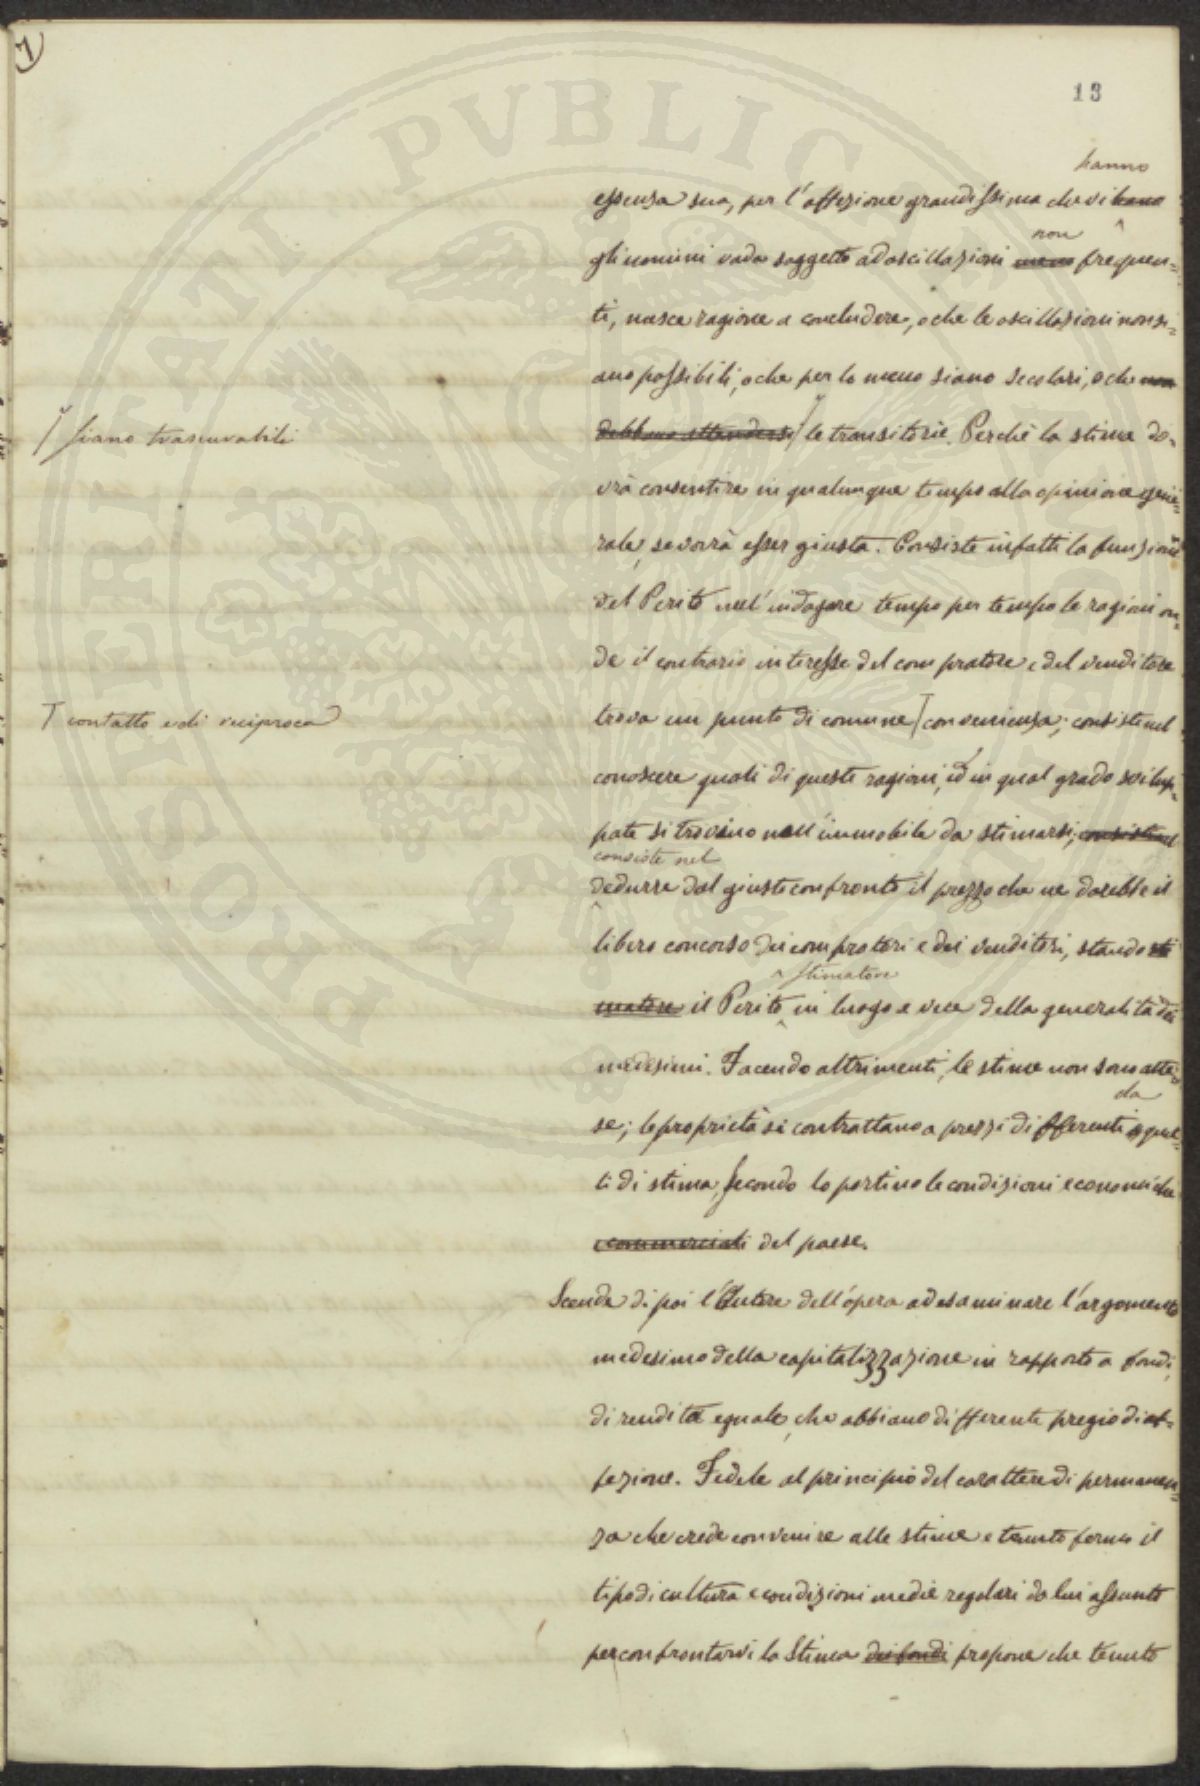 7
13
hanno
essenza sua, per l'affezione grandissima che vi hano
non
gli uomini vada soggetto ad oscillazioni meno frequen=
ti, nasce ragione a concludere, o che le oscillazioni non si=
ano possibili, o che per lo meno siano secolari, o che non
siano trascurabili
debbano attendersi le transitorie. Perchè la stima do=
vrà consentire in qualunque tempo alla opinione gene=
rale, se vorrà esser giusta. Consiste infatti la funzione
del Perito nell'indagare tempo per tempo le ragioni on=
de il contrario interesse del compratore e del venditore
T contatto e di reciproca
trova un punto di comune T convenienza; consiste nel
conoscere quali di queste ragioni, ed in qual grado svilup=
pate si trovino nell'immobile da stimarsi; consiste nel
consiste nel
dedurre dal giusto confronto il prezzo che ne darebbe il
libero concorso dei compratori e dei venditori, stando sti
stimatore
matore il Perito in luogo e vece della generalità dei
medesimi. Facendo altrimenti, le stime non sono atte=
da
se; le proprietà si contrattano a prezzi differenti a quel=
li di stima, secondo lo portino le condizioni economiche
e commerciali del paese.
Scende di poi l'Autore dell'opera ad esaminare l'argomento
medesimo della capitalizzazione in rapporto a fondi,
di rendita eguale, che abbiano differente pregio di af=
fezione. Fedele al principio del carattere di permanen=
za che crede convenire alle stime e tenuto fermo il
tipo di cultura e condizioni medie regolari da lui assunto
per confrontarvi la Stima dei fondi propone che tenuto
PUBLICAE
UTILITATI
PROSPERITATI